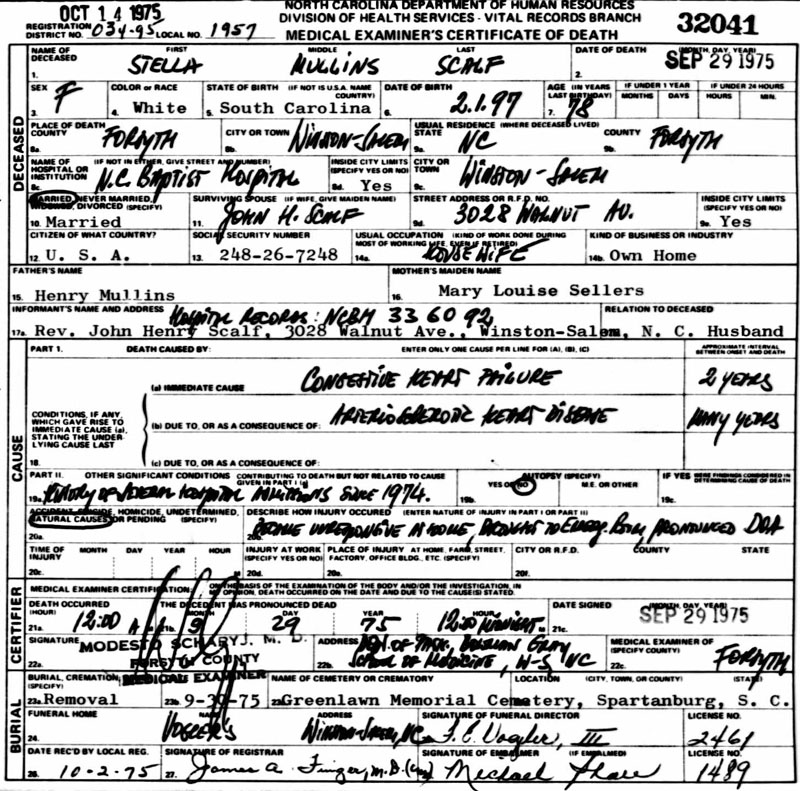 OCT 14 1975
NORTH CAROLINA DEPARTMENT OF HUMAN RESOURCES
DIVISION OF HEALTH SERVICES - VITAL RECORDS BRANCH
REGISTRATION DISTRICT NO. 034-95 LOCAL NO. 1957 MEDICAL EXAMINER'S CERTIFICATE OF DEATH 32041
NAME OF DECEASED FIRST MIDDLE LAST DATE OF DEATH (MONTH, DAY, YEAR)
1. STELLA MULLINS SCALF 2. SEP 29 1975
SEX COLOR or RACE STATE OF BIRTH (IF NOT IS U.S.A. NAME COUNTRY) DATE OF BIRTH AGE (IN YEARS LAST BIRTHDAY) IF UNDER 1 YEAR IF UNDER 24 HOURS
MONTHS DAYS HOURS MIN.
3. F 4. White 5. South Carolina 6. 2.1.97 7. 78
DECEASED
PLACE OF DEATH COUNTY CITY OR TOWN USUAL RESIDENCE (WHERE DECEASED LIVED) STATE COUNTY
8a. FORSYTH WINSTON-SALEM 9a. NC 9b. FORSYTH
NAME OF HOSPITAL OR INSTITUTION (IF NOT IN EITHER, GIVE STREET AND NUMBER) INSIDE CITY LIMITS (SPECIFY YES OR NO) CITY OR TOWN
8c. N.C. BAPTIST HOSPITAL 8d. Yes 9c. WINSTON-SALEM
MARRIED, NEVER MARRIED, WIDOWED, DIVORCED (SPECIFY) SURVIVING SPOUSE (IF WIFE, GIVE MAIDEN NAME) STREET ADDRESS OR R.F.D. NO. INSIDE CITY LIMITS (SPECIFY YES OR NO)
10. Married 11. JOHN H. SCALF 9d. 3028 WALNUT AV. 9e. Yes
CITIZEN OF WHAT COUNTRY? SOCIAL SECURITY NUMBER USUAL OCCUPATION (KIND OF WORK DONE DURING MOST OF WORKING LIFE, EVEN IF RETIRED) KIND OF BUSINESS OR INDUSTRY
12. U. S. A. 13. 248-26-7248 14a. HOUSEWIFE 14b. Own Home
FATHER'S NAME MOTHER'S MAIDEN NAME
15. Henry Mullins 16. Mary Louise Sellers
INFORMANT'S NAME AND ADDRESS HOSPITAL RECORDS: NCBH 33 60 92 RELATION TO DECEASED
17a. Rev. John Henry Scalf, 3028 Walnut Ave., Winston-Salem, N. C. Husband
PART 1. DEATH CAUSED BY: ENTER ONLY ONE CAUSE PER LINE FOR (A), (B), (C) APPROXIMATE INTERVAL BETWEEN ONSET AND DEATH
(a) IMMEDIATE CAUSE CONGESTIVE HEART FAILURE 2 YEARS
CAUSE
CONDITIONS, IF ANY, WHICH GAVE RISE TO IMMEDIATE CAUSE (a), STATING THE UNDERLYING CAUSE LAST
(b) DUE TO, OR AS A CONSEQUENCE OF: ARTERIOSCLEROTIC HEART DISEASE MANY YEARS
18. (c) DUE TO, OR AS A CONSEQUENCE OF:
PART II. OTHER SIGNIFICANT CONDITIONS CONTRIBUTING TO DEATH BUT NOT RELATED TO CAUSE GIVEN IN PART I (a) AUTOPSY (SPECIFY) YES OR NO M.E. OR OTHER IF YES WERE FINDINGS CONSIDERED IN DETERMINING CAUSE OF DEATH
19a. HISTORY OF SEVERAL HOSPITAL ADMISSIONS SINCE 1974. 19b. 19c.
ACCIDENT, SUICIDE, HOMICIDE, UNDETERMINED, NATURAL CAUSES OR PENDING (SPECIFY) DESCRIBE HOW INJURY OCCURED (ENTER NATURE OF INJURY IN PART I OR PART II)
20a. BECAME UNRESPONSIVE AT HOME, BROUGHT TO EMERG. ROOM, PRONOUNCED DOA
TIME OF INJURY MONTH DAY YEAR HOUR INJURY AT WORK (SPECIFY YES OR NO) PLACE OF INJURY AT HOME, FARM, STREET, FACTORY, OFFICE BLDG., ETC. (SPECIFY) CITY OR R.F.D. COUNTY STATE
20c. M 20d. 20e. 20f.
CERTIFIER
MEDICAL EXAMINER CERTIFICATION: ON THE BASIS OF THE EXAMINATION OF THE BODY AND/OR THE INVESTIGATION, IN MY OPINION, DEATH OCCURRED ON THE DATE AND DUE TO THE CAUSE(S) STATED.
DEATH OCCURRED (HOUR) THE DECEDENT WAS PRONOUNCED DEAD MONTH DAY YEAR HOUR DATE SIGNED (MONTH, DAY, YEAR)
21a. 12:00 A 21b. 9 29 75 12:00 MIDNIGHT. 21c. SEP 29 1975
SIGNATURE MODESTO SCHARYJ. M. D. ADDRESS DEPT. OF PATH., BOWMAN GRAY MEDICAL EXAMINER OF (SPECIFY COUNTY)
22a. FORSYTH COUNTY 22b. SCHOOL OF MEDICINE, W-S, NC 22c. FORSYTH
MEDICAL EXAMINER
BURIAL, CREMATION, (SPECIFY) NAME OF CEMETERY OR CREMATORY LOCATION (CITY, TOWN, OR COUNTY) (STATE)
23a. Removal 23b. 9-30-75 Greenlawn Memorial Cemetery, Spartanburg, S. C.
BURIAL
FUNERAL HOME NAME ADDRESS SIGNATURE OF FUNERAL DIRECTOR LICENSE NO.
24. VOGLER'S WINSTON-SALEM, NC F. E. Vogler, III 2461
DATE REC'D BY LOCAL REG. SIGNATURE OF REGISTRAR SIGNATURE OF EMBALMER (IF EMBALMED) LICENSE NO.
26. 10-2-75 27. James A. Finger, M.D. Michael 1489